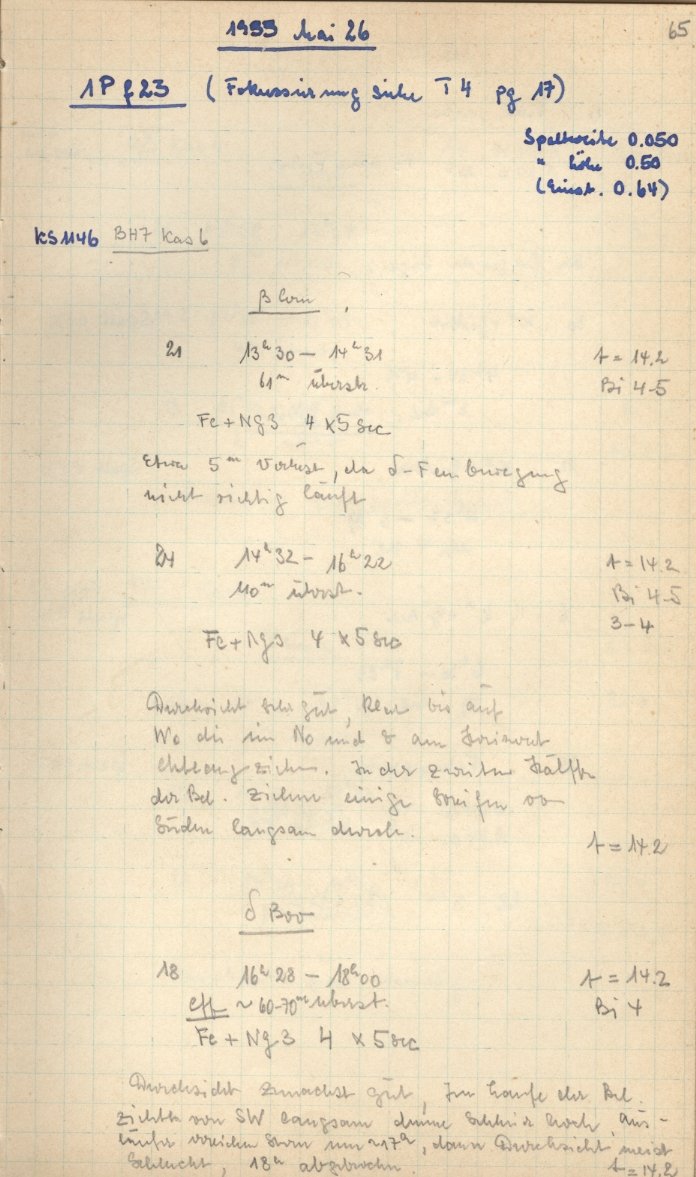 1933 Mai 26
65
1P f 23 (Fokussierung siehe T 4 pg 17)
Spaltweite 0.050
" höhe 0.50
(Einst. 0.64)
KS 1146 BH7 Kas 6
β Com
21 13ʰ30 – 14ʰ31 t = 14.2
61ᵐ überstr. Bi 4-5
Fe + Ng3 4 × 5 sec
Etwa 5ᵐ Verlust, da δ-Feinbewegung
nicht richtig läuft
14ʰ32 – 16ʰ22 t = 14.2
110ᵐ überstr. Bi 4-5
3-4
Fe + Ng3 4 × 5 sec
Durchsicht sehr gut, klar bis auf
Wo die im No und am Horizont
entlang ziehen. In der zweiten Hälfte
der Bel. ziehen einige Streifen von
Süden langsam durch.
t = 14.2
δ Boo
18 16ʰ28 – 18ʰ00 t = 14.2
eff ~ 60-70ᵐ überstr. Bi 4
Fe + Ng3 4 × 5 sec
Durchsicht zunächst gut, Im Laufe der Bel.
ziehen von SW langsam dünne hoch, Aus-
läufer erreichen Stern um ~17ʰ, dann Durchsicht meist
schlecht, 18ʰ abgebrochen.
t = 14.2